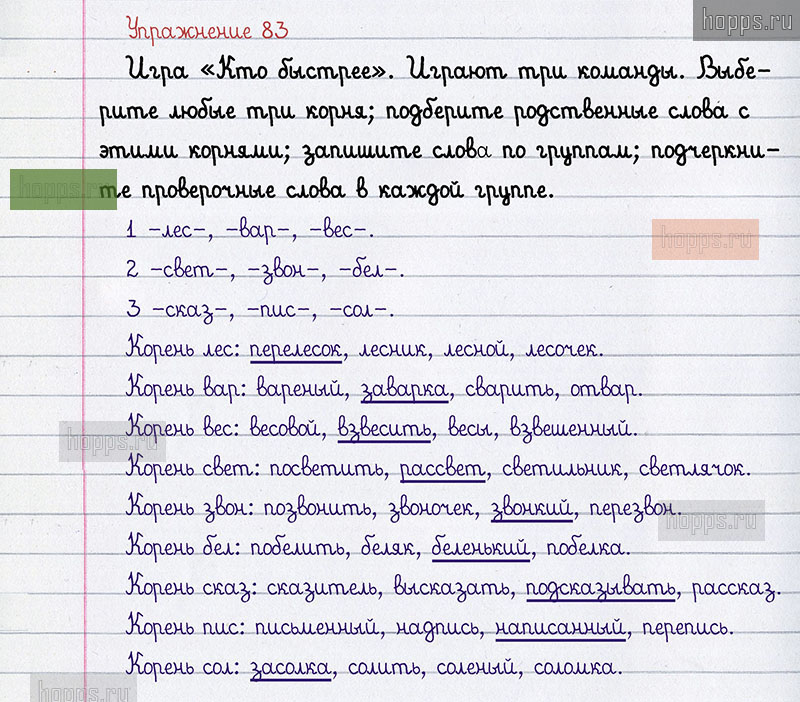 hopps.ru
Упражнение 83
Игра «Кто быстрее». Играют три команды. Выбе-
рите любые три корня; подберите родственные слова с
этими корнями; запишите слова по группам; подчеркни-
hopps.ru
те проверочные слова в каждой группе.
1 -лес-, -вар-, -вес-.
hopps.ru
2 -свет-, -звон-, -бел-.
3 -сказ-, -пис-, -сол-.
Корень лес: перелесок, лесник, лесной, лесочек.
Корень вар: вареный, заварка, сварить, отвар.
Корень вес: весовой, взвесить, весы, взвешенный.
hopps.ru
Корень свет: посветить, рассвет, светильник, светлячок.
Корень звон: позвонить, звоночек, звонкий, перезвон.
hopps.ru
Корень бел: побелить, беляк, беленький, побелка.
Корень сказ: сказитель, высказать, подсказывать, рассказ.
Корень пис: письменный, надпись, написанный, перепись.
Корень сол: засолка, солить, соленый, соломка.
hopps.ru